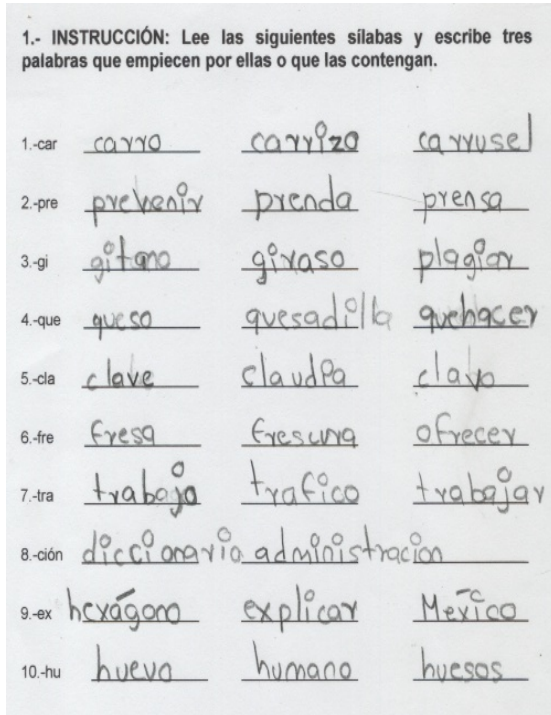 1.- INSTRUCCIÓN: Lee las siguientes sílabas y escribe tres
palabras que empiecen por ellas o que las contengan.
1.-car carro carrizo carrusel
2.-pre prevenir prenda prensa
3.-gi gitano giraso plagiar
4.-que queso quesadilla quehacer
5.-cla clave claudia clavo
6.-fre fresa frescura ofrecer
7.-tra trabajo trafico trabajar
8.-ción diccionario administracion
9.-ex hexágono explicar México
10.-hu huevo humano huesos